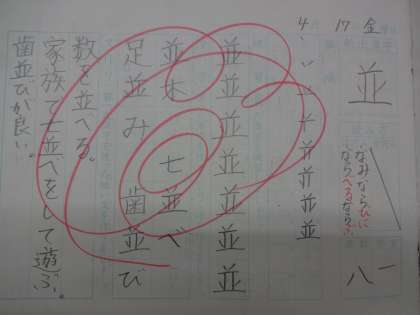 4 17 金
並
なみならびに
ならべるならぶ
八 一
並並並並並並並
並木 七並べ
足並み 歯並び
数を並べる。
家族で七並べをして遊ぶ。
歯並びが良い。